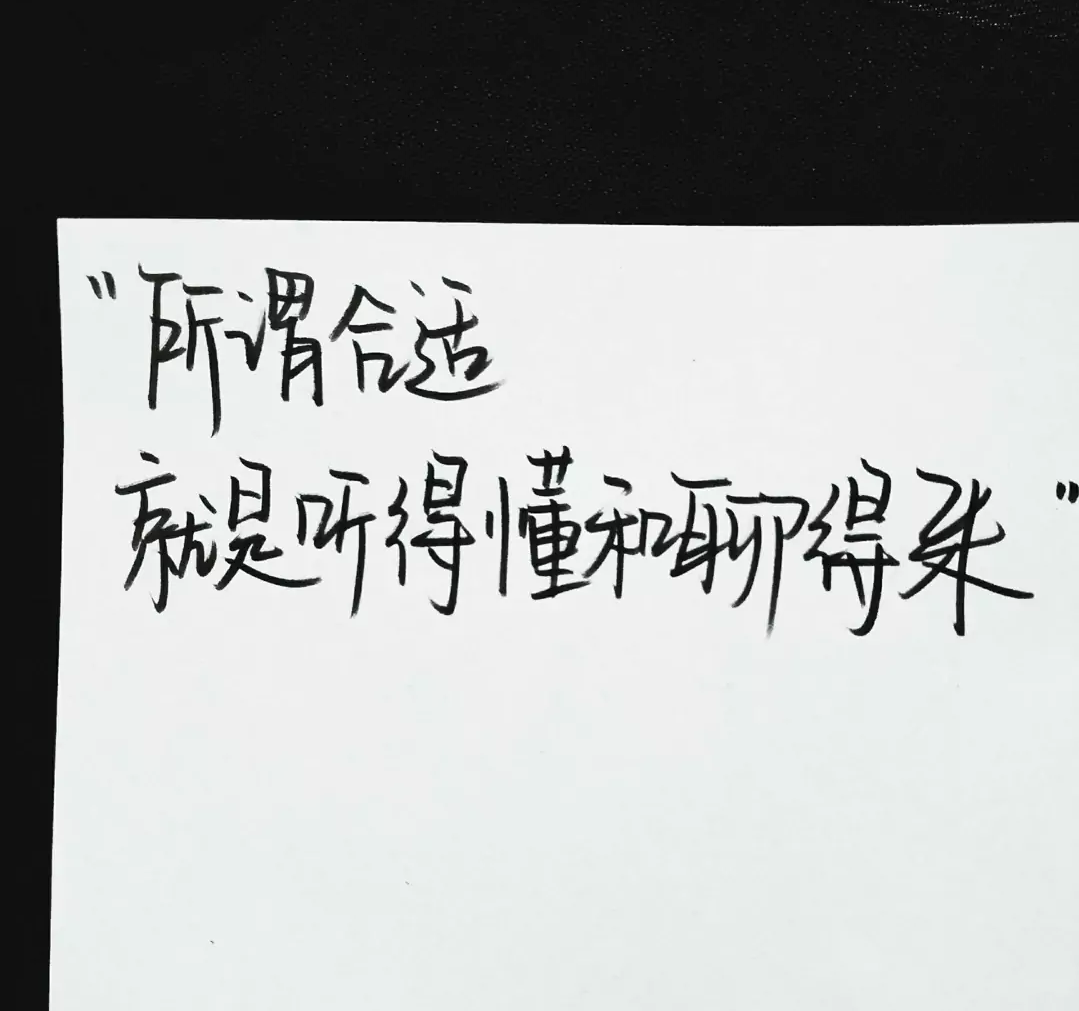 "所谓合适
就是听得懂和聊得来"